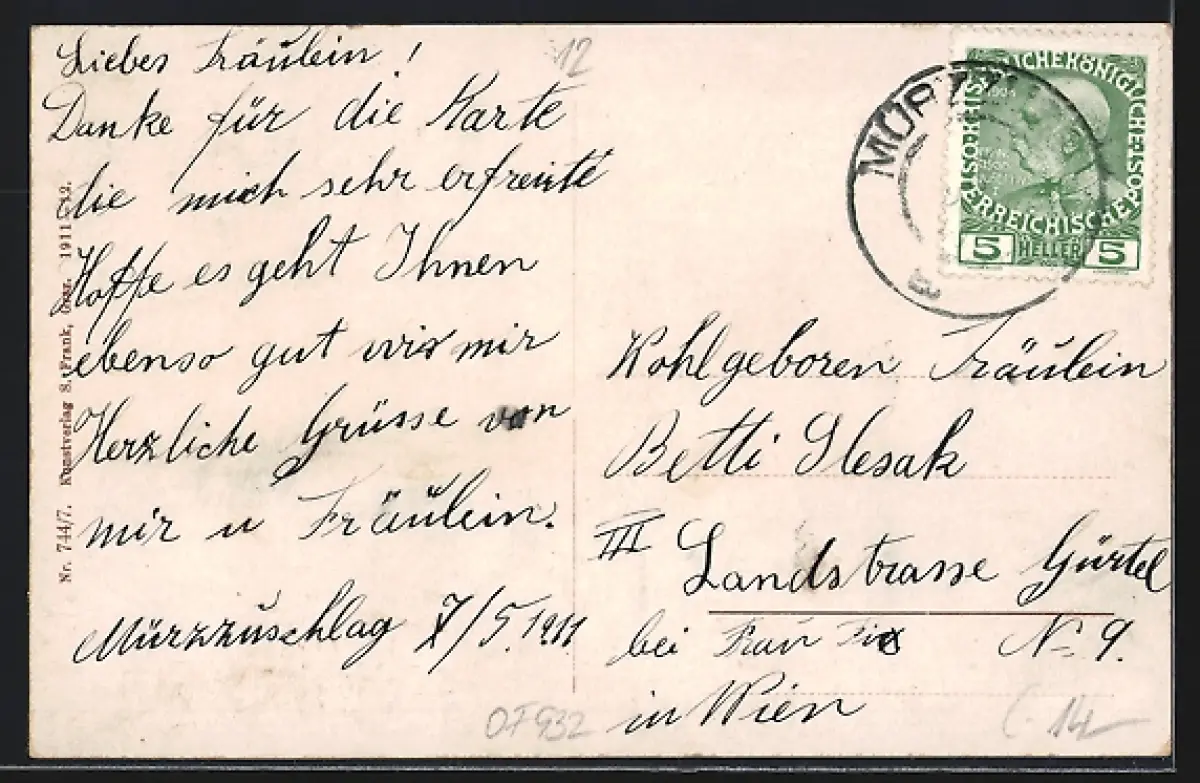 Liebes Fräulein!
Danke für die Karte
die mich sehr erfreute
Hoffe es geht Ihnen
ebenso gut wie mir
Herzliche Grüsse von
mir u Fräulein.
Mürzzuschlag 7/5. 1911
Nr. 744/7. Kunstverlag S. Frank, Graz. 1911
12
MÜRZZ
5 HELLER 5
Kohlgeboren Fräulein
Betti Slesak
III Landstrasse Gürtel
bei Frau No 9.
in Wien
OF 932
14